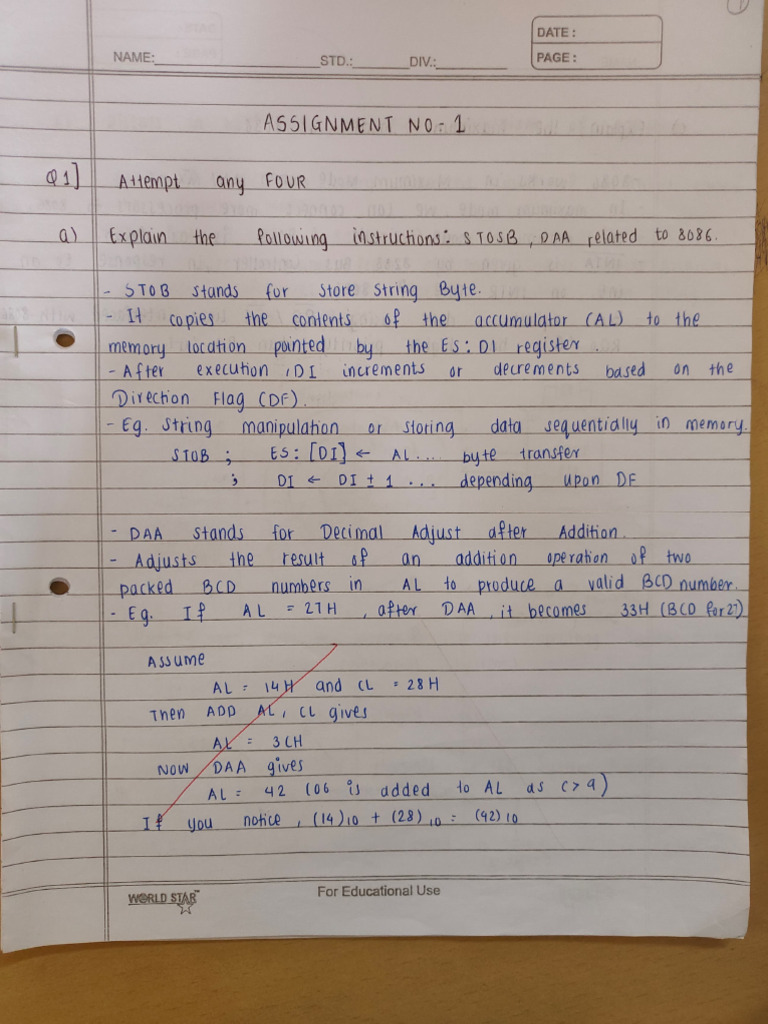 1
DATE :
PAGE :
NAME: STD.: DIV.:
ASSIGNMENT NO-1
Q1] Attempt any FOUR
a) Explain the following instructions: STOSB, DAA related to 8086.
- STOB stands for Store String Byte.
- It copies the contents of the accumulator (AL) to the
memory location pointed by the ES: DI register.
- After execution, DI increments or decrements based on the
Direction Flag (DF).
- Eg. String manipulation or storing data sequentially in memory.
STOB ; ES: [DI] ← AL.... byte transfer
; DI ← DI ± 1 ... depending upon DF
- DAA stands for Decimal Adjust after Addition.
- Adjusts the result of an addition operation of two
packed BCD numbers in AL to produce a valid BCD number.
- Eg. If AL = 27H , after DAA, it becomes 33H (BCD for 27)
Assume
AL = 14H and CL = 28H
Then ADD AL, CL gives
AL = 3CH
NOW DAA gives
AL = 42 (06 is added to AL as C > 9)
If you notice, (14)10 + (28)10 = (42)10
WORLD STAR™
For Educational Use